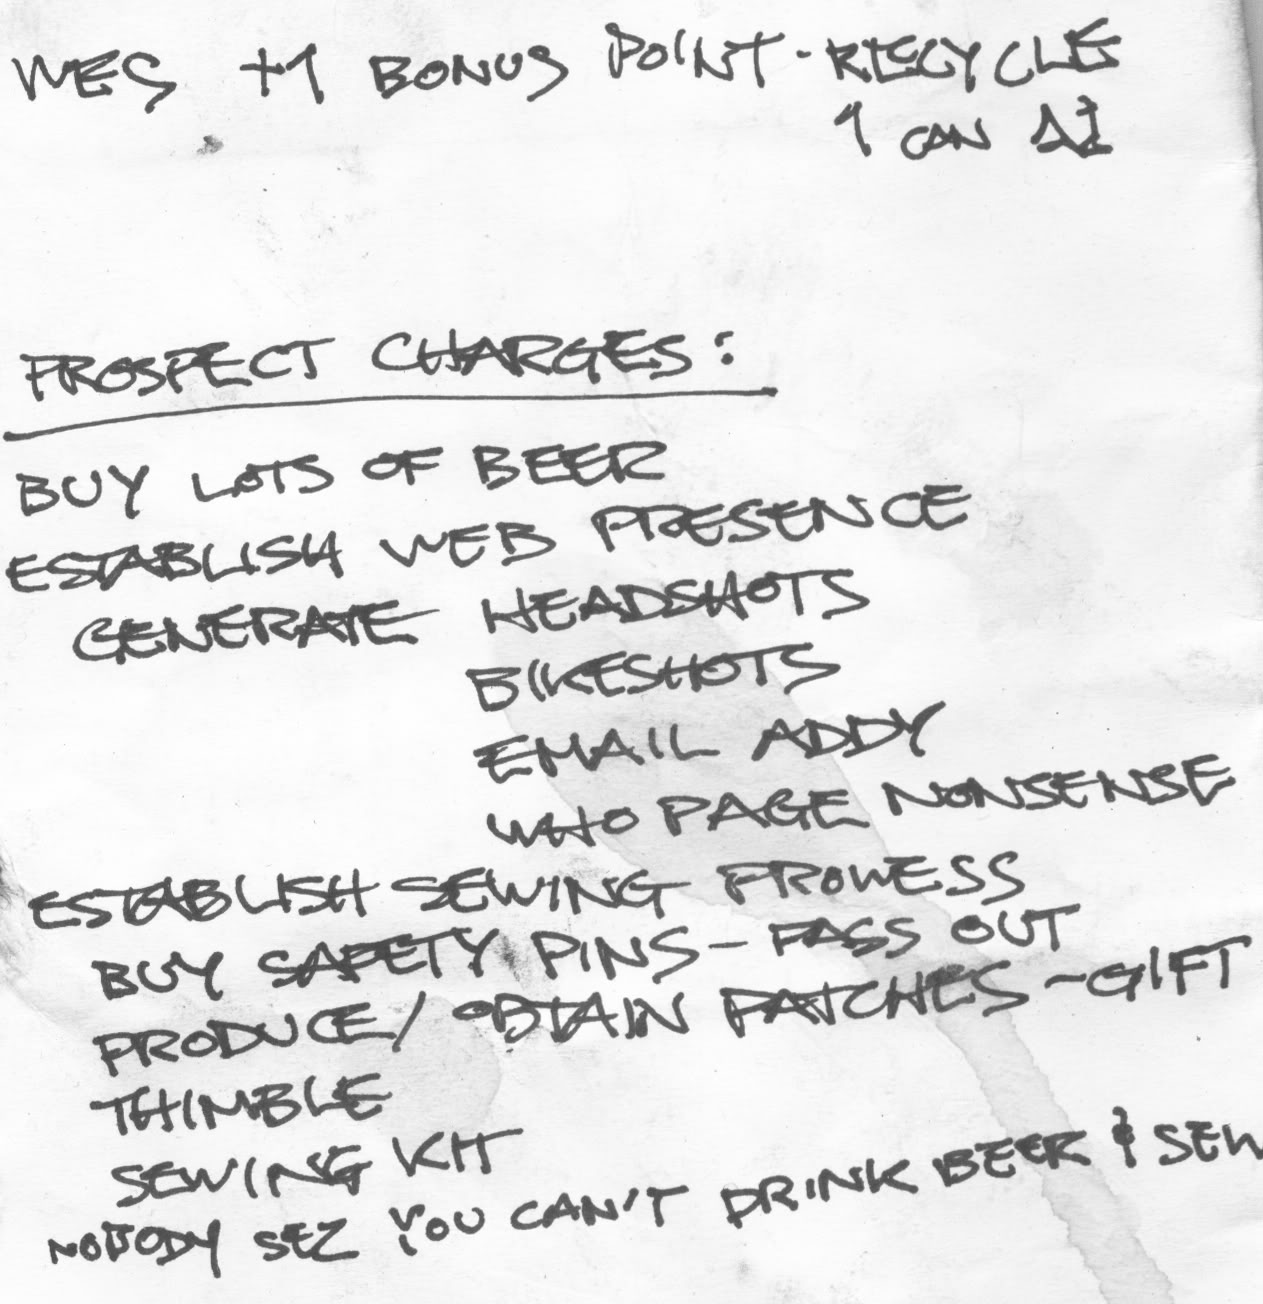 WES +1 BONUS POINT - RECYCLE
1 CAN AL
PROSPECT CHARGES:
BUY LOTS OF BEER
ESTABLISH WEB PRESENCE
GENERATE HEADSHOTS
BIKESHOTS
EMAIL ADDY
WHO PAGE NONSENSE
ESTABLISH SEWING PROWESS
BUY SAFETY PINS - PASS OUT
PRODUCE/OBTAIN PATCHES ~ GIFT
THIMBLE
SEWING KIT
NOBODY SEZ YOU CAN'T DRINK BEER & SEW